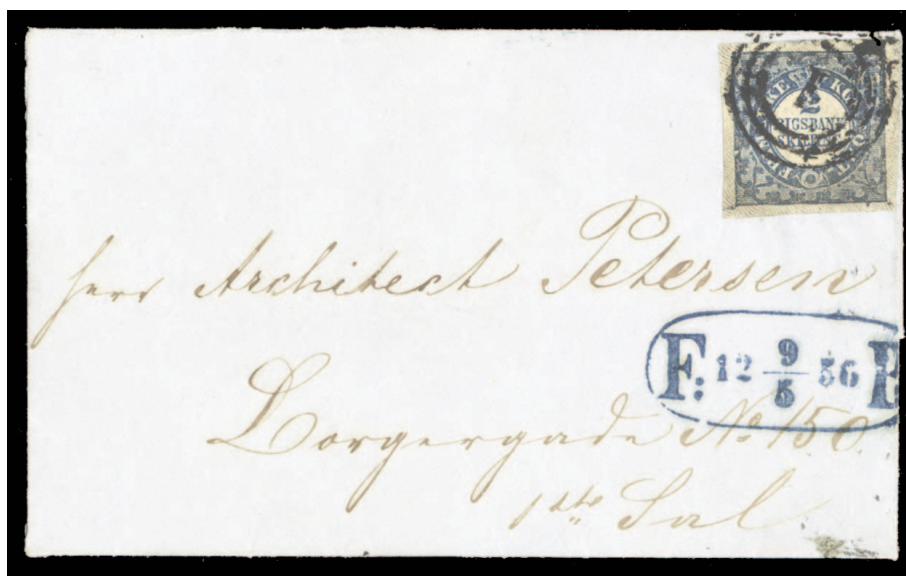 2
RIGSBANK
SKILLING
herr Architect Petersen
F: 12 9/5 56
Borgergade No 150
1ste Sal